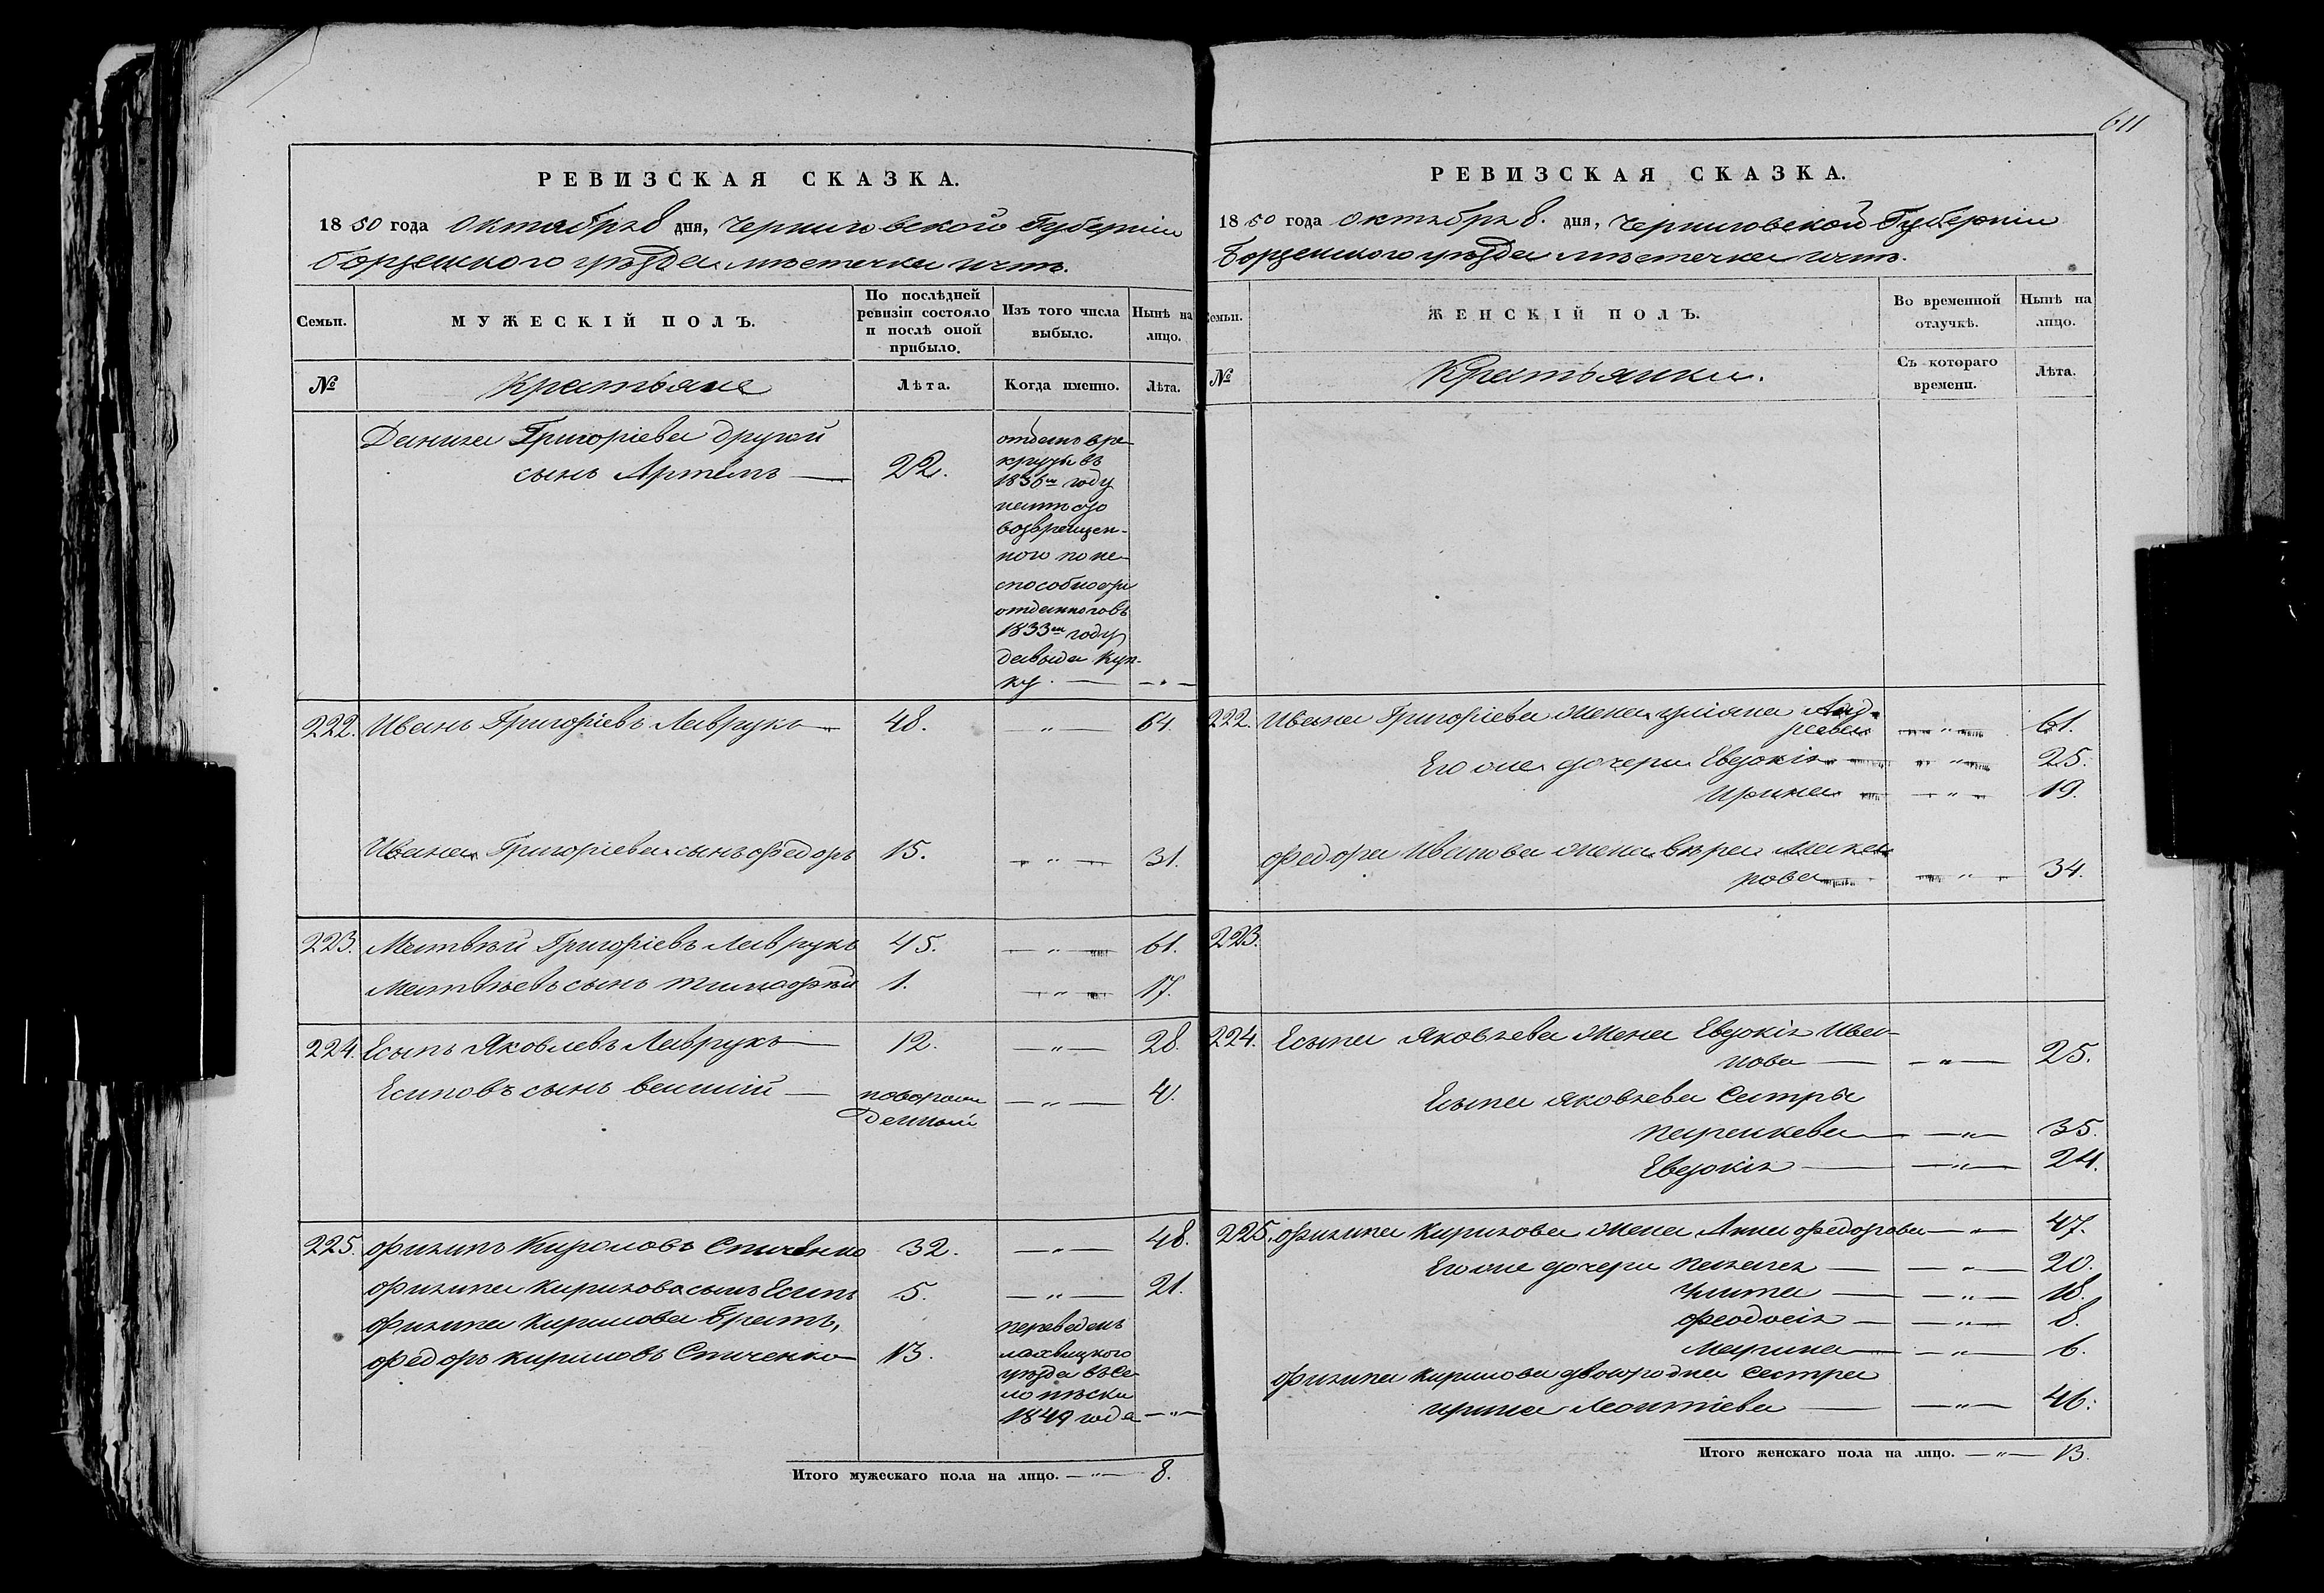 611
РЕВИЗСКАЯ СКАЗКА.
1850 года Октября 8 дня, Черниговской Губерніи
Борзенского уѣзда мѣстечка Ичнѣ.
Семьи.
МУЖЕСКІЙ ПОЛЪ.
По послѣдней ревизіи состояло и послѣ оной прибыло.
Изъ того числа выбыло.
Нынѣ на лицо.
№
Крестьяне
Лѣта.
Когда именно.
Лѣта.
Данила Григоріева другой
сынъ Артемъ — 22.
отданъ вре-
круты въ
1836м году
наместо
возвращен-
ного по не-
способности
отданного въ
1833м году
давыда Куп-
ку. — — " —
222. Иванъ Григоріевъ Лаврукъ — 48. — " — 64.
Ивана Григоріева сынъ Федоръ 15. — " — 31.
223. Матвѣй Григоріевъ Лаврукъ 45. — " — 61.
Матвѣевъ сынъ Тимофѣй 1. — " — 17.
224. Есипъ Яковлевъ Лаврукъ — 12. — " — 28.
Есиповъ сынъ Василій — новорож
денный — " — 4.
225. Филипъ Кириловъ Спиченко 32. — " — 48.
Филипа Кирилова сынъ Есипъ 5. — " — 21.
Филипа Кирилова Братъ,
Федоръ Кириловъ Спиченко 13.
переведенъ
лохвицкого
уѣзда въ се
ло пѣски
1849 года — " —
Итого мужескаго пола на лицо. — " — 8.
РЕВИЗСКАЯ СКАЗКА.
1850 года Октября 8. дня, Черниговской Губерніи
Борзенского уѣзда мѣстечка Ичнѣ.
Семьи.
ЖЕНСКІЙ ПОЛЪ.
Во временной отлучкѣ.
Нынѣ на лицо.
№
Крестьянки.
Съ котораго времени.
Лѣта.
222. Ивана Григоріева жена уліана Анд-
реева — " — 61.
Его же дочери Евдокія — " — 25.
Ирина — " — 19.
Федора Иванова жена вѣра
нова — " — 34.
223.
224. Есипа Яковлева жена Евдокія Ива-
нова — — " — 25.
Есипа Яковлева Сестры
параскева — — " — 35.
Евдокія — — " — 24.
225. Филипа Кирилова жена Анна Федорова — " — 47.
Его же дочери пелагея — — " — 20.
— — " — 18.
Феодосія — — " — 8.
Марина — — " — 6.
Филипа Кирилова двоюродна Сестра
ирина Леонтіева — — " — 46.
Итого женскаго пола на лицо. — " — 13.